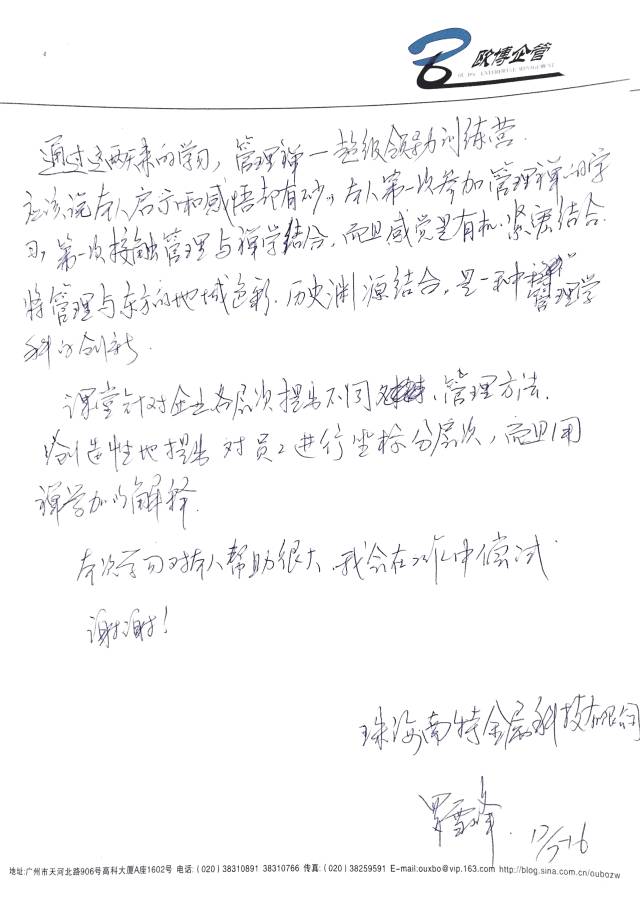 欧博企管
OUBO ENTERPRISE MANAGEMENT
通过这两天来的学习，管理禅—超级领导力训练营.
应该说本人启示和感悟都有不少。本人第一次参加管理禅的学
习，第一次接触管理与禅学结合，而且感觉是有机、紧密结合.
将管理与东方的地域色彩.历史渊源结合，是一种管理学
科的创新.
课堂针对企业各层次提出不同、管理方法.
创造性地提出对员工进行坐标分层次，而且用
禅学加以解释.
本次学习对本人帮助很大、我会在工作中偿试
谢谢！
珠海南特金属科技有限公司
罗雪峰. 12/7-16
地址:广州市天河北路906号高科大厦A座1602号 电话:(020)38310891 38310766 传真:(020)38259591 E-mail:ouxbo@vip.163.com http://blog.sina.com.cn/oubozw